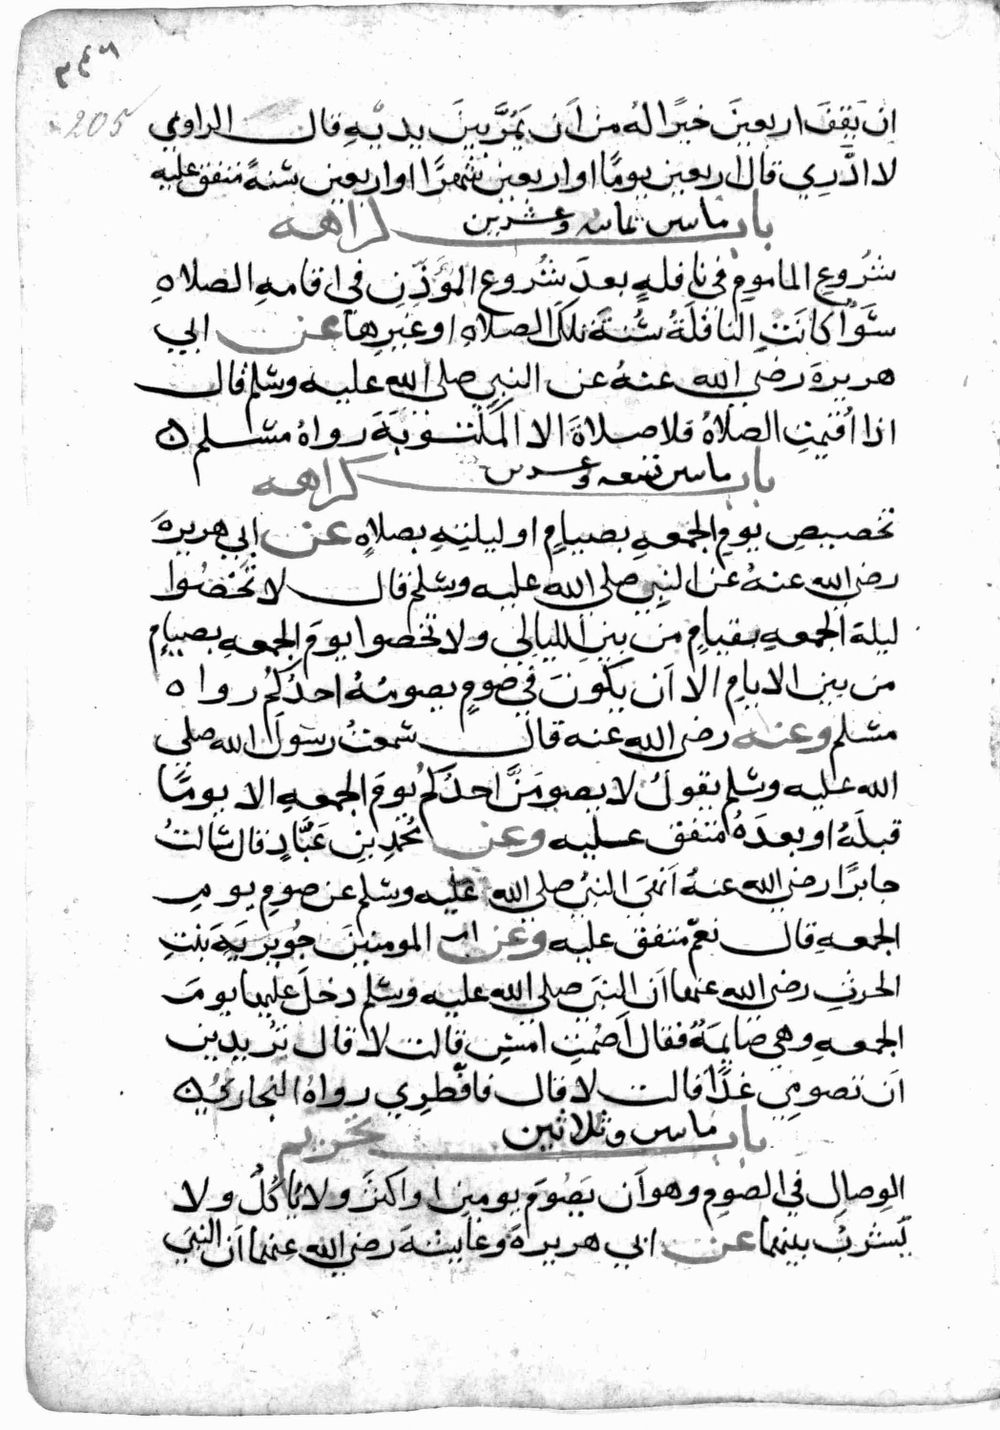 ٣٤٦
205
ان يَقِفَ اربعينَ خيرًا لهُ من اَن يَمُرَّ بينَ يديْهِ قال الراوي
لا ادْرِي قال اربعين يومًا او اربعين شهرًا او اربعين سنةً متفق عليه
باب مايتين ثمانيه وعشرين كراهه
شرُوعِ الماموم في نافلهٍ بعدَ شُروع الموَذِّنِ في اقامهِ الصلاهِ
سَوَاً كانَتِ النافلَةُ سُنةَ تلكَ الصلاهِ او غيرِها عن ابي
هريرةَ رضي الله عنهُ عن النبيِ صلى الله عليه وسلم قال
اذا اُقيمتِ الصلاةُ فلا صلاةَ الا المكتوبَةَ رواهُ مسلم
باب مايتين تسعه وعشرين كراهه
تخصيصِ يومِ الجمعهِ بصيامٍ او ليلتِهِ بصلاهٍ عن ابي هريرةَ
رضي الله عنهُ عن النبيِ صلى الله عليه وسلم قال لا تَخُصُوا
ليلةَ الجمعهِ بقيامٍ من بين الليالي ولا تخصوا يومَ الجمعهِ بصيامٍ
من بين الايامِ الا اَن يكونَ في صومٍ يصومُهُ احدُكُم رواه
مسلم وعنه رضي الله عنه قال سمعتُ رسولَ الله صلى
الله عليه وسلم يقولُ لا يصومَنَّ احدُكُم يومَ الجمعهِ الا يومًا
قبلَهُ او بعدَهُ متفق عليه وعن مُحمدِ بنِ عَبَّادٍ قال سَالتُ
جابرًا رضي الله عنهُ اَنهَى النبيُ صلى الله عليه وسلم عن صومِ يومِ
الجمعهِ قال نعَمْ متفق عليه وعن ام المومنينَ جُويريَةَ بنتِ
الحرثِ رضي الله عنها اَن النبيَ صلى الله عليه وسلم دخلَ عليها يومَ
الجمعهِ وهي صَايمَةٌ فقال اَصُمتِ امْسِ قالت لا قال تريدين
اَن تصومِي غدًا قالت لا قال فافْطِري رواهُ البخاريُ
باب مايتين وثلاثين تحريم
الوِصالِ في الصومِ وهو اَن يَصُومَ يومين او اكثرَ ولا ياكُلُ ولا
يَشربُ بينهما عن ابي هريرةَ وعايشةَ رضي الله عنهما اَن النبيَ